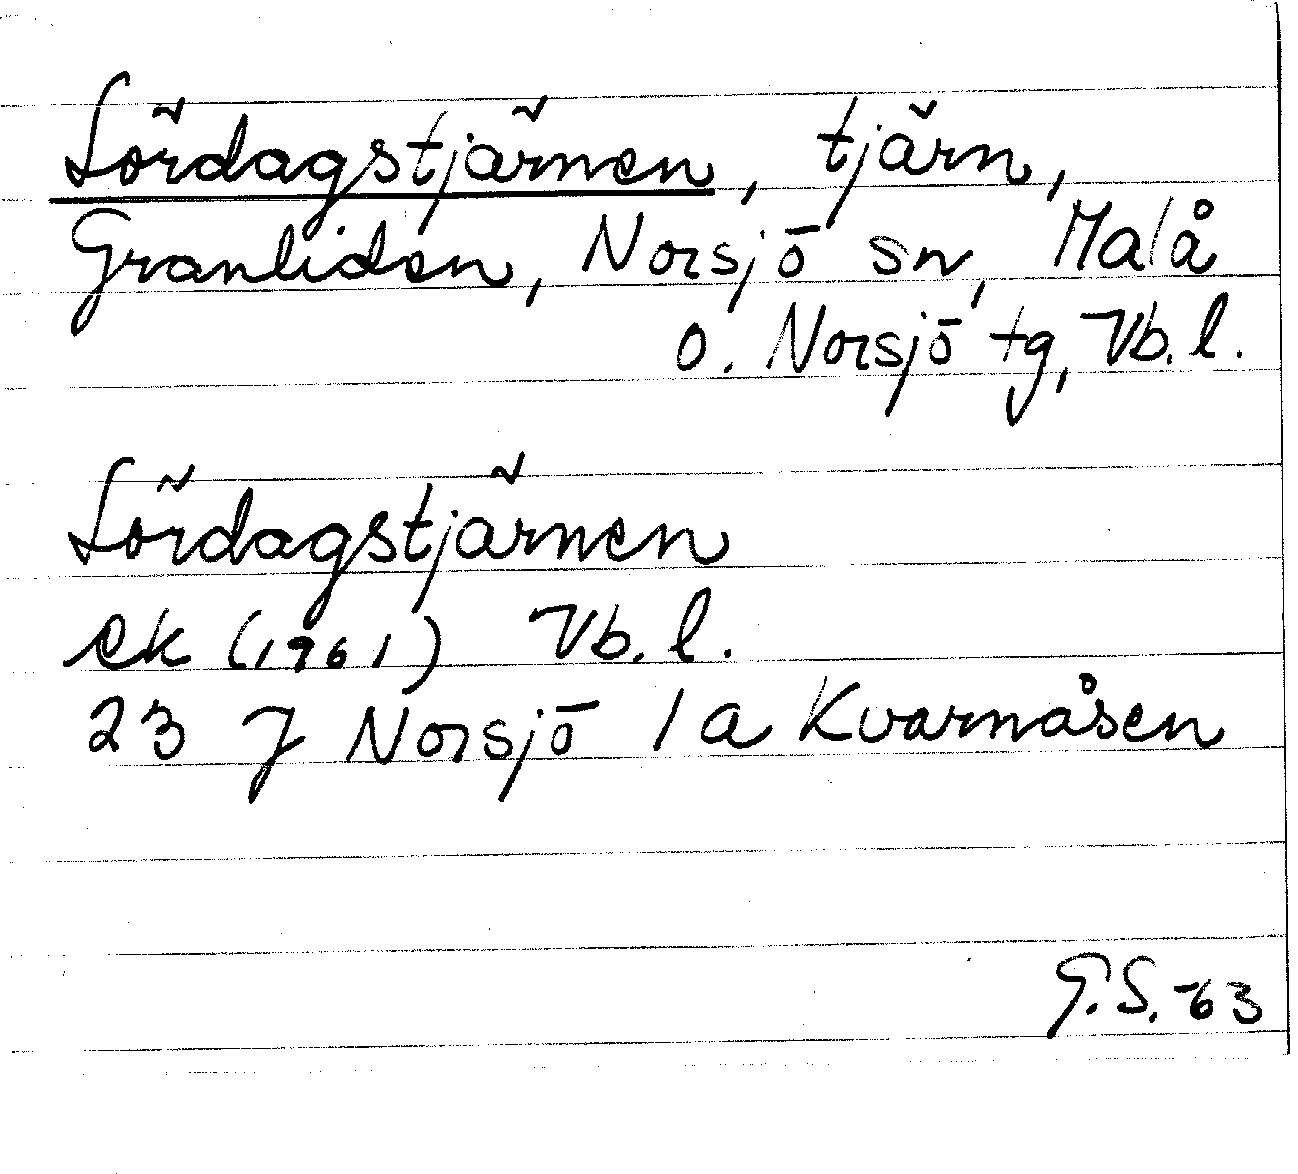 Lördagstjärnen, tjärn,
Granliden, Norsjö sn, Malå
o. Norsjö tg, Vb. l.
Lördagstjärnen
ek (1961) Vb. l.
23 J Norsjö 1 a Kvarnåsen
G.S. -63